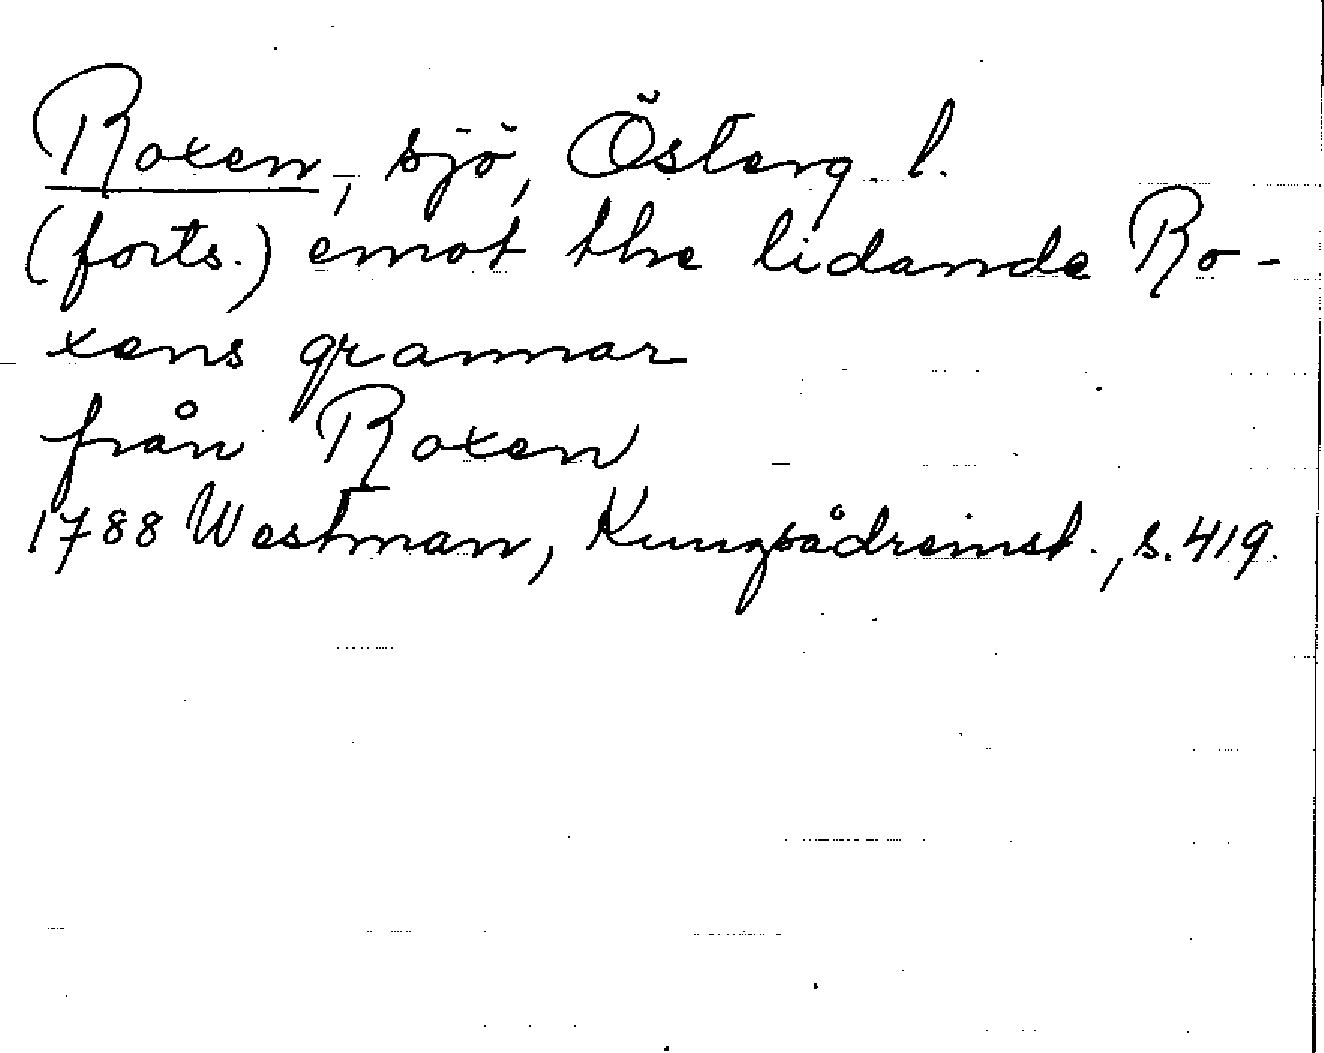 Roxen, sjö, Österg. l.
(forts.) emot the lidande Ro-
xens grannar
från Roxen
1788 Westman, Kungsådreinst., s. 419.